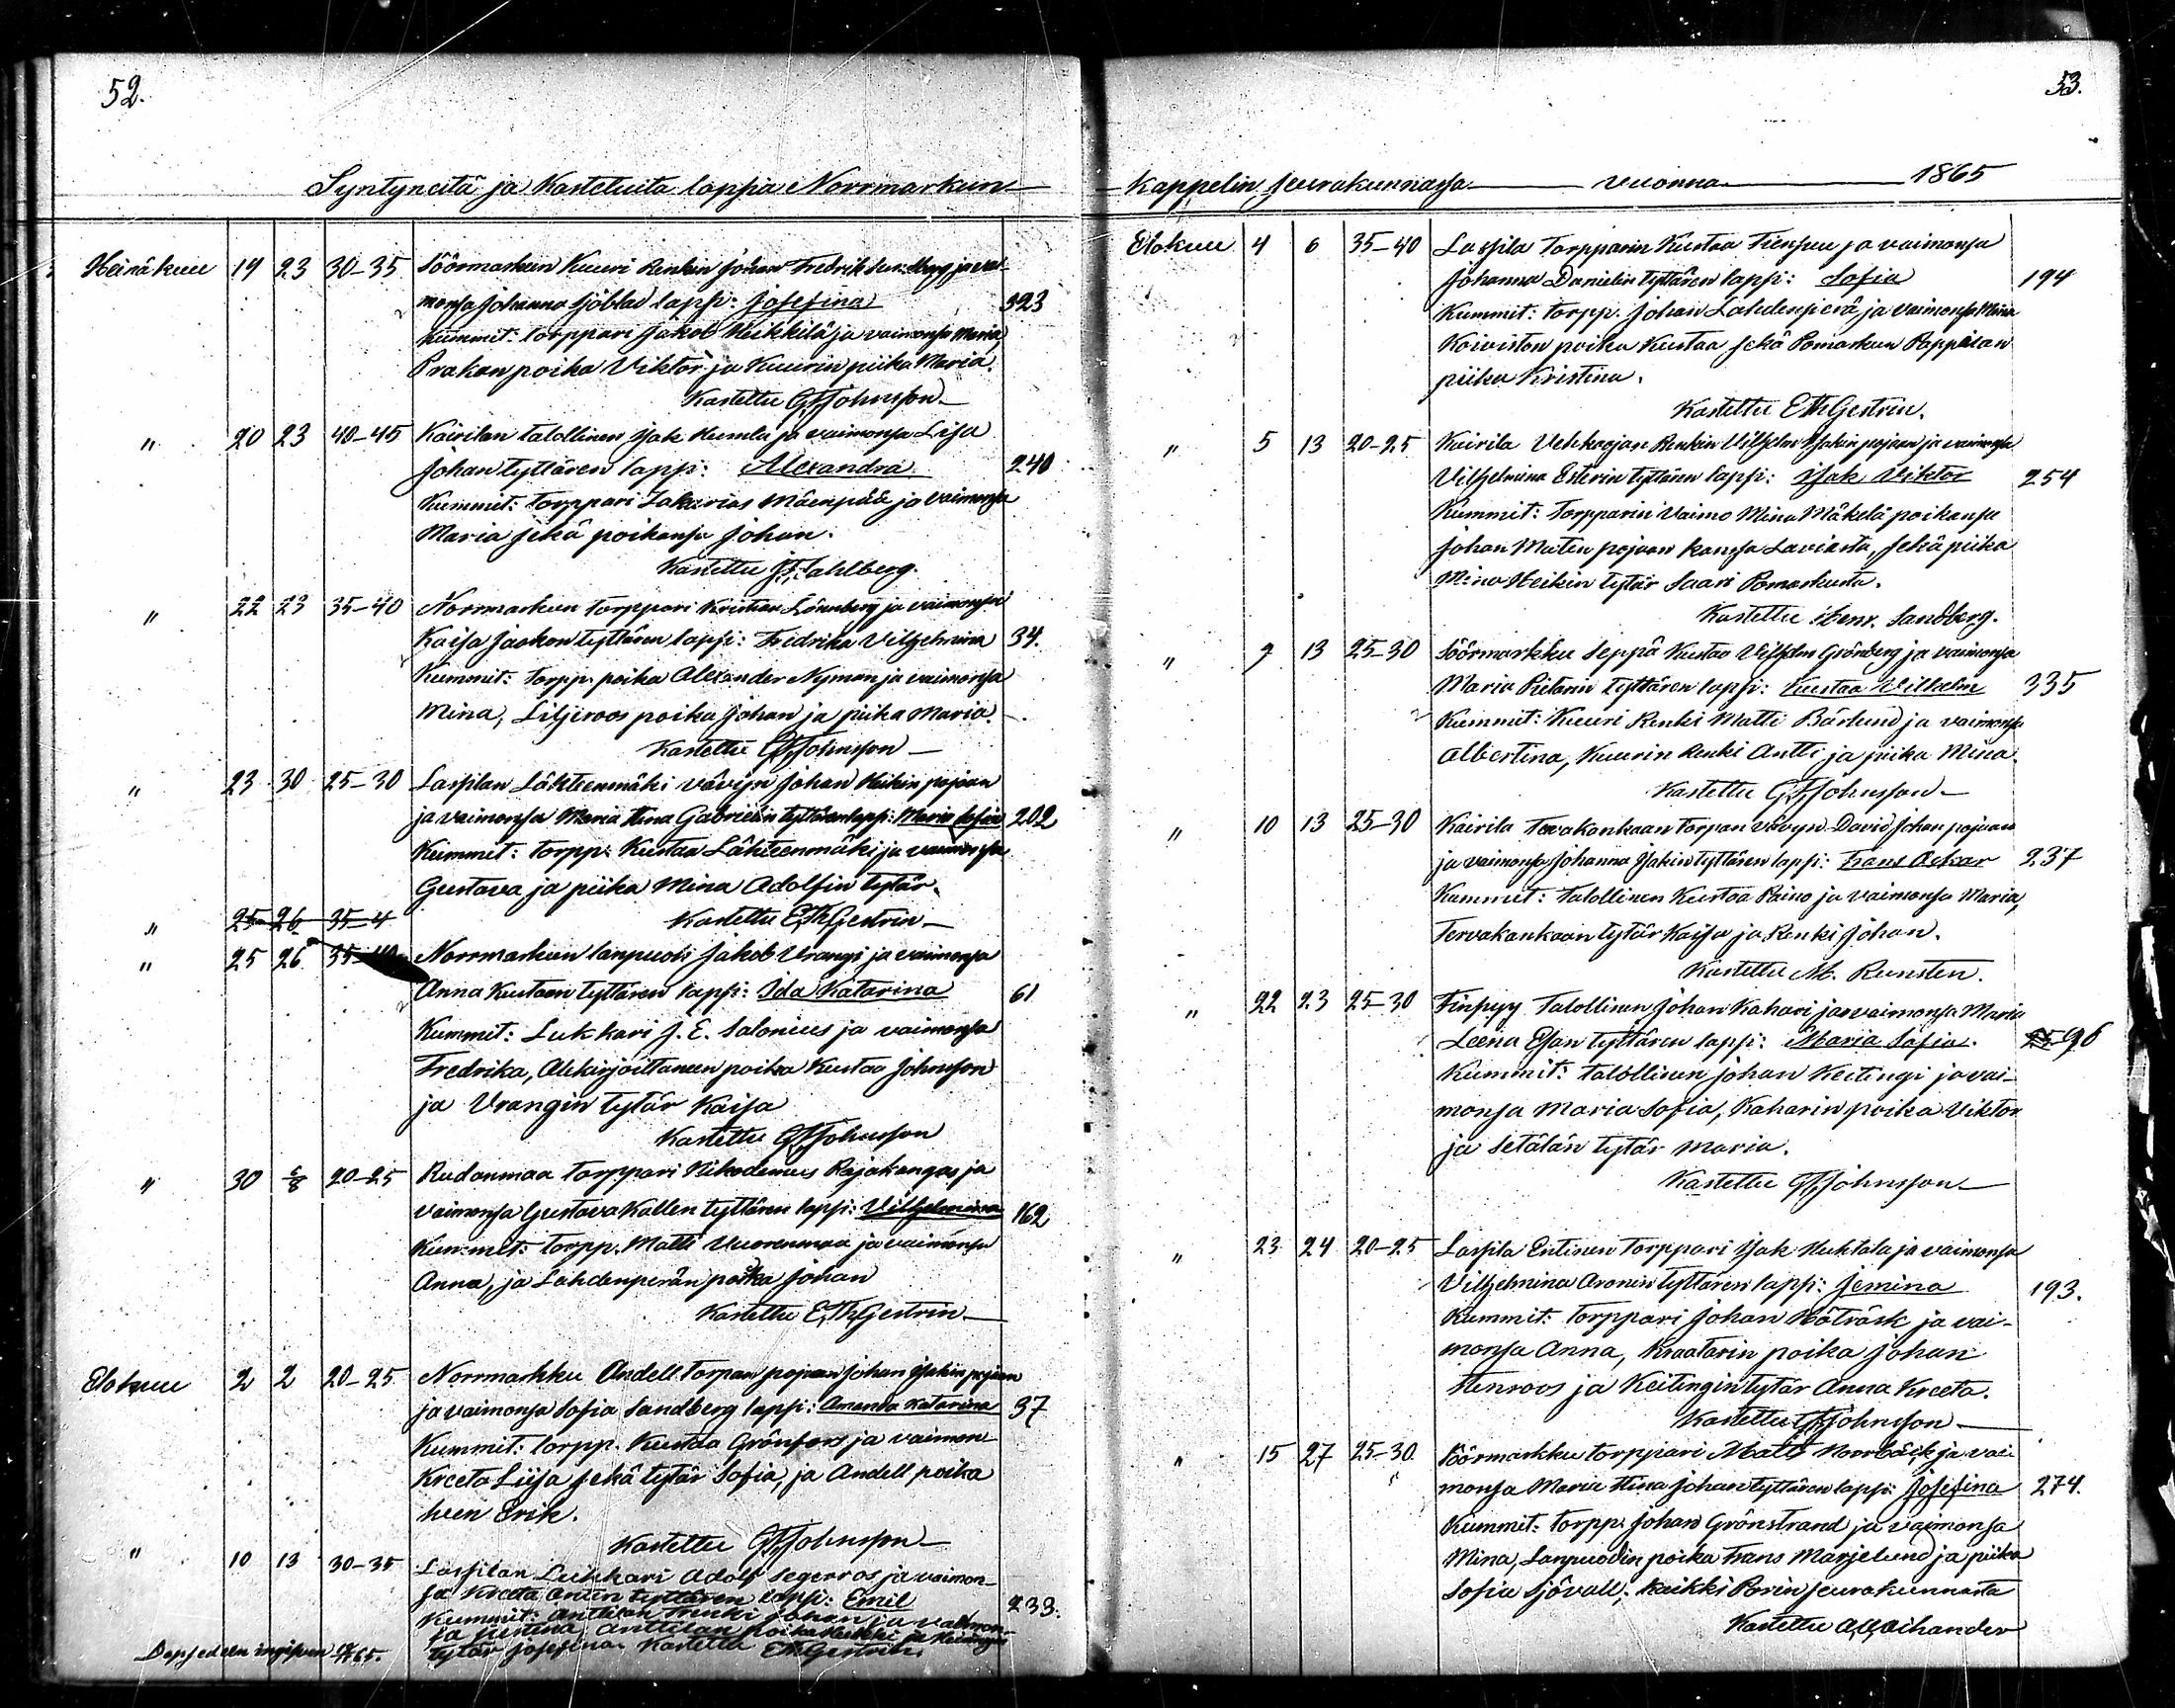 52.
Syntyneitä ja Kastetuita lapsia Norrmarkun
Heinäkuu 19 23 30–35 Söörmarkun Kuuri Renkin Johan Fredrik Sundberg ja vai-
monsa Johanna Sjöblad lapsi: Josefina 323
Kummit: torppari Jakob Heikkilä ja vaimonsa Maria,
Prakan poika Viktor ja Kuurin piika Maria.
Kastettu GFJohnsson
" 20 23 40–45 Kairilan talollinen Isak Humla ja vaimonsa Lisa
Johan tyttären lapsi: Alexandra 240
Kummit: torppari Sakarias Mäenpää ja vaimonsa
Maria sekä poikansa Johan.
Kastettu Sahlberg.
" 22 23 35–40 Norrmarkun torppari Kristian Lönnberg ja vaimonsa
Kaisa Jaakon tyttären lapsi: Fredrika Vilhelmina 34.
Kummit: Torpp. poika Alexander Nyman ja vaimonsa
Mina, Liljeroos poika Johan ja piika Maria.
Kastettu GFJohnsson
" 23 30 25–30 Lassilan Lähteenmäki vävyn Johan Heikin pojan
ja vaimonsa Maria Stina Gabrielin tyttären lapsi: Maria Sofia 202
Kummit: torpp. Kustaa Lähteenmäki ja vaimonsa
Gustava ja piika Mina Adolfin tytär.
" 25 26 35–4 Kastettu EThGestrin
" 25 26 35–40 Norrmarkun lanpuoti Jakob Vrangi ja vaimonsa
Anna Kustaan tyttären lapsi: Ida Katarina 61
Kummit: Lukkari J. E. Salonius ja vaimonsa
Fredrika, Alikirjoittaneen poika Kustaa Johnsson
ja Vrangin tytär Kaisa
Kastettu GFJohnsson
" 30 6/8 20–25 Rudanmaa torppari Nikodemus Rajakangas ja
vaimonsa Gustava Kallen tyttären lapsi: Vilhelmina 162
Kummit: torpp. Matti Vuorenmaa ja vaimonsa
Anna, ja Lahdenperän poika Johan
Kastettu EThGestrin
Elokuu 2 2 20–25 Norrmarkku Andell Torpan pojan Johan Isakin pojan
ja vaimonsa Sofia Sandberg lapsi: Amanda Katarina 37
Kummit: torpp. Kustaa Grönfors ja vaimon
Kreeta Liisa sekä tytär Sofia, ja Andell poika
Erik.
Kastettu GFJohnsson
" 10 13 30–35 Lassilan Lukkari Adolf Segerroos ja vaimon-
sa Kreeta Antin tyttären lapsi: Emil 233.
Kummit: Anttilan Johan ja vaimon-
sa Justina Anttilan poika Heikki ja
tytär Josefina Kastettu EThGestrin.
53.
Kappelin seurakunnassa vuonna 1865
Elokuu 4 6 35–40 Lassila Torpparin Kustaa Tiensuu ja vaimonsa
Johanna Danielin tyttären lapsi: Sofia 194
Kummit: torpp. Johan Lahdenperä ja vaimonsa Mina
Koiviston poika Kustaa sekä Pomarkun Pappilan
piika Kristina.
Kastettu EThGestrin.
" 5 13 20–25 Kairila Vehkaojan Renkin Vilhelm Isakin pojan ja vaimonsa
Vilhelmina Esterin tyttären lapsi: Isak Viktor 254
Kummit: Torpparin Vaimo Mina Mäkelä poikansa
Johan Matin pojan kanssa Laviasta, sekä piika
Mina Heikin tytär Saari Pomarkusta.
Kastettu Henr. Sandberg.
" 9 13 25–30 Söörmarkku Seppä Kustaa Vilhelm Grönberg ja vaimonsa
Maria Pietarin tyttären lapsi: Kustaa Vilhelm 335
Kummit: Kuuri Renki Matti Bärlund ja vaimonsa
Albertina, Kuurin Renki Antti, ja piika Mina.
Kastettu GFJohnsson
" 10 13 25–30 Kairila Tervakankaan torpan vävyn David Johan pojan
ja vaimonsa Johanna Isakin tyttären lapsi: Frans Oskar 237
Kummit: Talollinen Kustaa Paino ja vaimonsa Maria,
Tervakankaan tytär Kaisa ja Renki Johan.
Kastettu M. Runsten.
" 22 23 25–30 Finpyy Talollisen Johan Kahari ja vaimonsa Maria
Leena Esan tyttären lapsi: Maria Sofia. 96
Kummit: talollinen Johan Keitingi ja vai-
monsa Maria Sofia, Kaharin poika Viktor
ja Setälän tytär Maria.
Kastettu GFJohnsson
" 23 24 20–25 Lassila Entinen Torppari Isak Huhtala ja vaimonsa
Vilhelmina Aronin tyttären lapsi: Jemina 193.
Kummit: Torppari Johan Håträsk ja vai-
monsa Anna, Kraatarin poika Johan
Stenroos ja Keitingin tytär Anna Kreeta.
Kastettu GFJohnsson
" 15 27 25–30 Söörmarkku torppari Matts Norrbäck ja vai-
monsa Maria Stina Johan tyttären lapsi: Josefina 274.
Kummit: torpp. Johan Grönstrand ja vaimonsa
Mina, Lanpuodin poika Frans Marjelund ja piika
Sofia Sjövall; kaikki Porin seurakunnasta
Kastettu